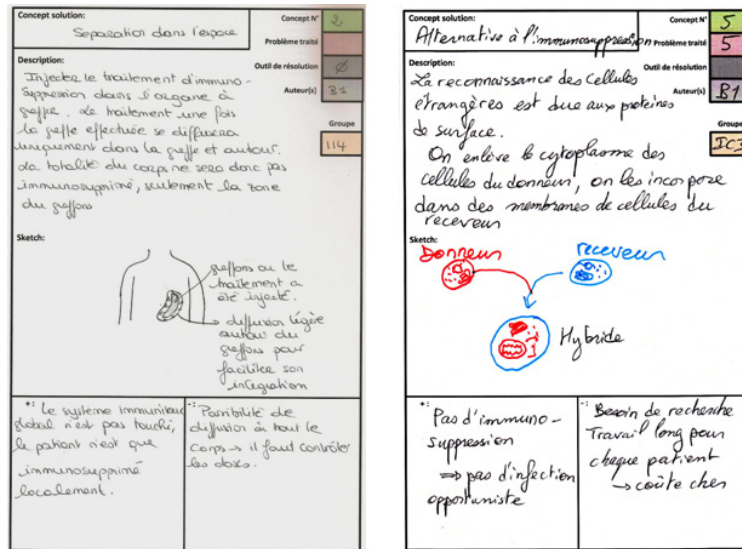 Concept solution:
Separation dans l'espace
Concept N°
2
Problème traité
Outil de résolution
Ø
Description:
Auteur(s)
B1
Injecter le traitement d'immuno-
suppression dans l'organe à
greffer. Le traitement une fois
la greffe effectuée se diffusera
uniquement dans la greffe et autour.
La totalité du corps ne sera donc pas
immunosupprimé, seulement la zone
du greffons
Groupe
114
Sketch:
greffons ou le
traitement a
été injecté.
diffusion légère
autour du
greffons pour
faciliter son
intégration
+:
Le système immunitaire
global n'est pas touché,
le patient n'est que
immunosupprimé
localement.
-:
Possibilité de
diffusion à tout le
corps → il faut contrôler
les doses.
Concept solution:
Alternative à l'immunosuppression
Concept N°
5
Problème traité
5
Outil de résolution
Description:
Auteur(s)
B1
La reconnaissance des cellules
étrangères est due aux protéines
de surface.
On enlève le cytoplasme des
cellules du donneur, on les incorpore
dans des membranes de cellules du
receveur
Groupe
IC3
Sketch:
Donneur
receveur
Hybride
+:
Pas d'immuno-
suppression
⇒ pas d'infection
opportuniste
-:
Besoin de recherche
Travail long pour
chaque patient
→ coûte cher